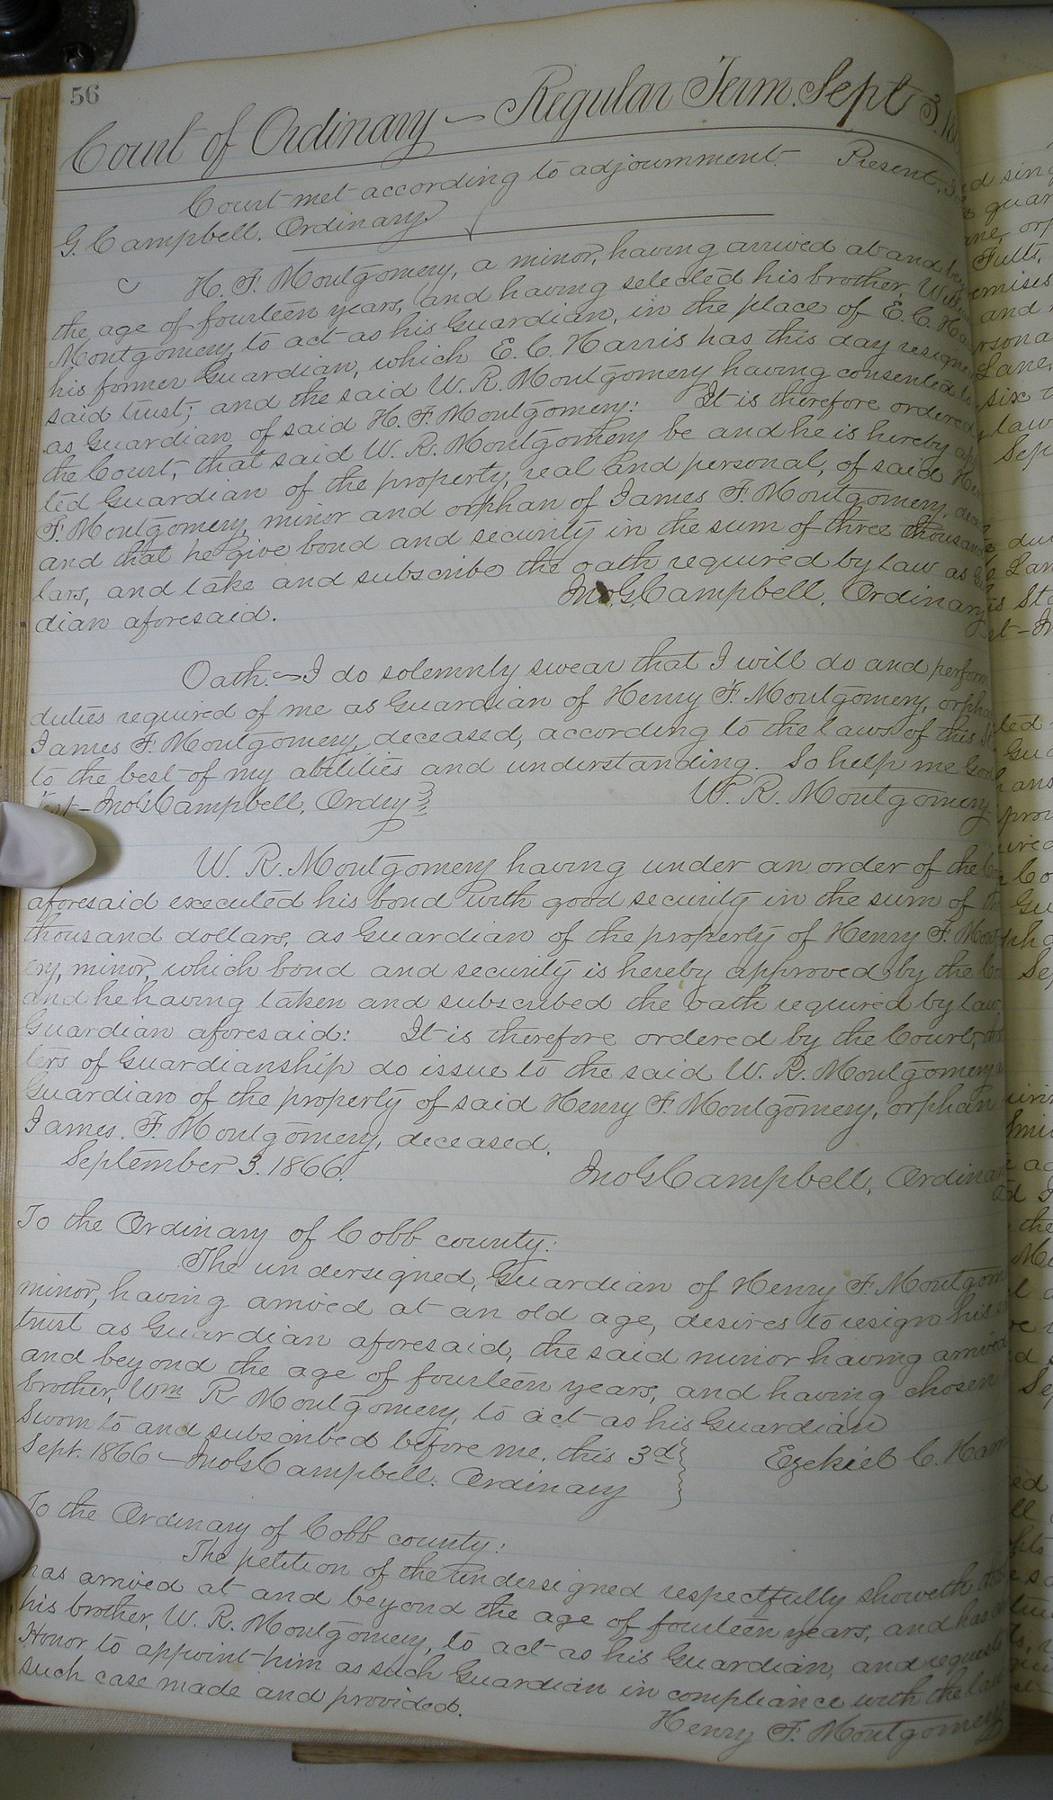 56
Court of Ordinary — Regular Term. Sept 3. 18
Court met according to adjournment. Present,
G. Campbell. Ordinary.
H. F. Montgomery, a minor, having arrived at and
the age of fourteen years, and having selected his brother, W. R.
Montgomery, to act as his Guardian, in the place of E. C. Har
his former Guardian, which E. C. Harris has this day resign
said trust; and the said W. R. Montgomery having consented to
as Guardian of said H. F. Montgomery: It is therefore ordered
the Court, that said W. R. Montgomery be and he is hereby ap
ted Guardian of the property, real and personal, of said Hen
F. Montgomery, minor and orphan of James F. Montgomery, dece
and that he give bond and security in the sum of three thousand
lars, and take and subscribe the oath required by law as
dian aforesaid. Jno. G. Campbell. Ordinary
Oath.—I do solemnly swear that I will do and perform
duties required of me as Guardian of Henry F. Montgomery, orpha
James F. Montgomery, deceased, according to the laws of this
to the best of my abilities and understanding. So help me God
Jno G Campbell, Ordry W. R. Montgomery
W. R. Montgomery having under an order of the
aforesaid executed his bond with good security in the sum of
thousand dollars, as Guardian of the property of Henry F. Mont
ery, minor, which bond and security is hereby approved by the
and he having taken and subscribed the oath required by law
Guardian aforesaid: It is therefore ordered by the Court,
ters of Guardianship do issue to the said W. R. Montgomery
Guardian of the property of said Henry F. Montgomery, orphan
James. F. Montgomery, deceased.
September 3. 1866. Jno G Campbell, Ordinar
To the Ordinary of Cobb county:
The undersigned, Guardian of Henry F. Montgom
minor, having arrived at an old age, desires to resign his
trust as Guardian aforesaid, the said minor having arrived
and beyond the age of fourteen years, and having chosen
brother, Wm R Montgomery, to act as his Guardian
Sworn to and subscribed before me, this 3d Ezekiel C. Harri
Sept. 1866—Jno G Campbell. Ordinary
To the Ordinary of Cobb county:
The petition of the undersigned respectfully showeth
has arrived at and beyond the age of fourteen years, and has
his brother, W. R. Montgomery, to act as his Guardian, and request
Honor to appoint him as such Guardian in compliance with the law
such case made and provided.
Henry F. Montgomery